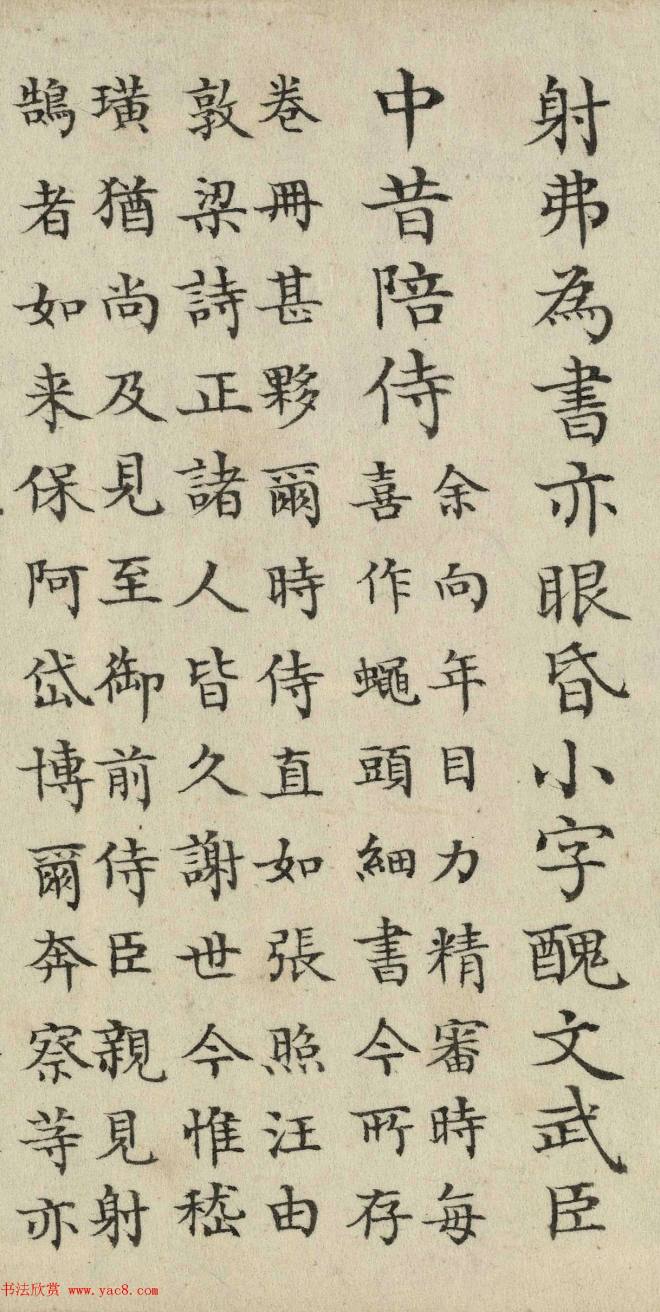 射弗為書亦眼昏小字醜文武臣
中昔陪侍
余向年目力精審時每
喜作蠅頭細書今所存
卷冊甚夥爾時侍直如張照汪由
敦梁詩正諸人皆久謝世今惟嵇
璜猶尚及見至御前侍臣親見射
鵠者如来保阿岱博爾奔察等亦
书法欣赏 www.yac8.com